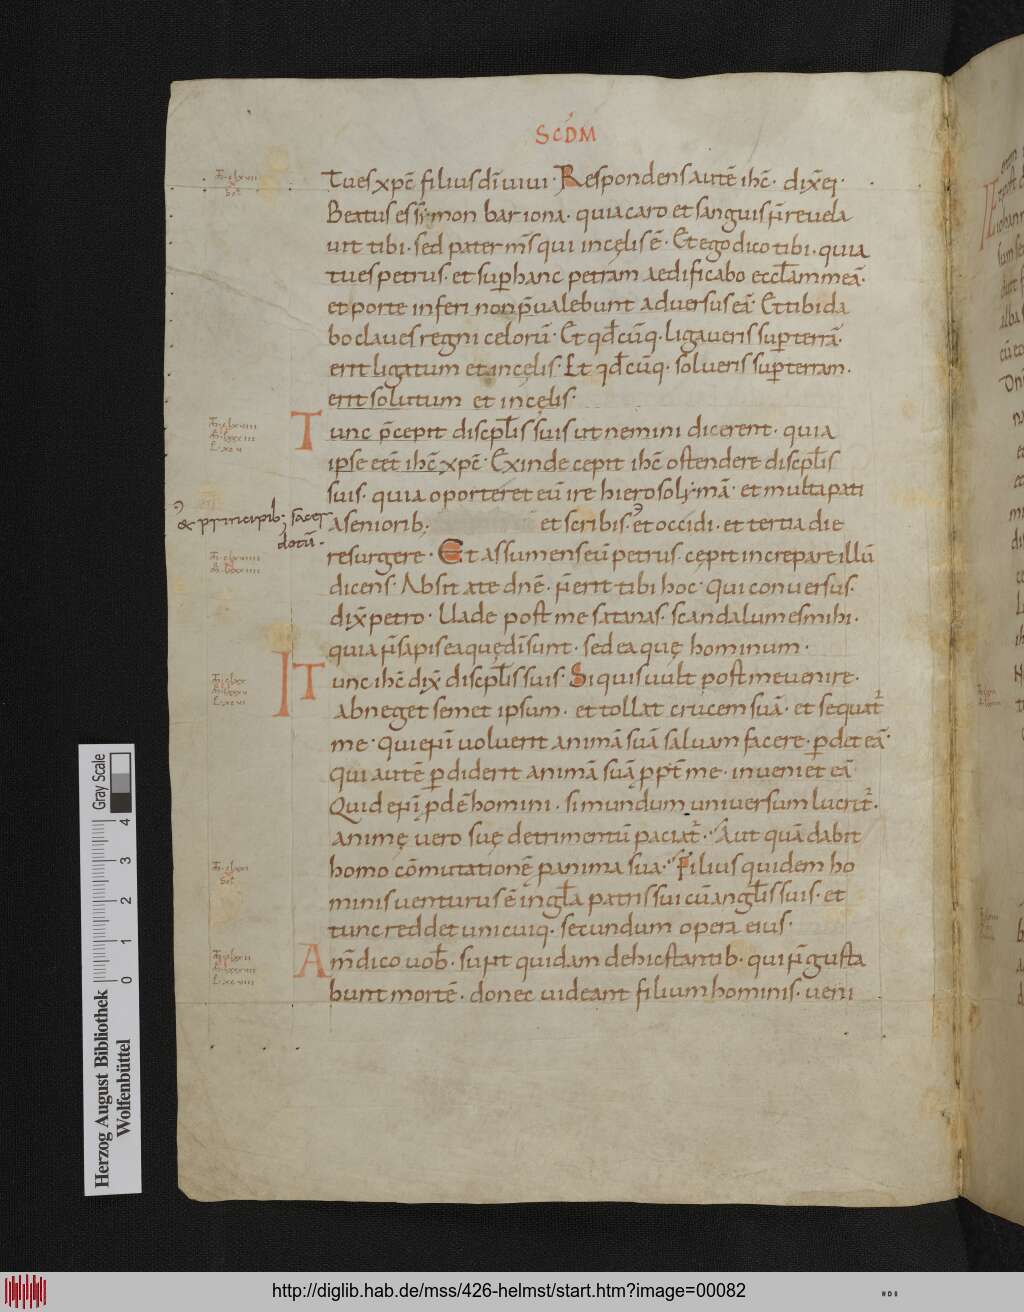 SCDM
Tu es xpc̄ filius dī uiui · Respondens autē ihc̄ · dix̄ ei ·
Beatus es symon bar iona · quia caro et sanguis n̄ reuela
uit tibi · sed pater m̄s qui in cęlis ē · Et ego dico tibi · quia
tu es petrus · et sup hanc petram aedificabo eccl̄am meā ·
et porte inferi non p̄ualebunt aduersus eā · Et tibi da
bo claues regni celorū · Et qd̄cūq · ligaueris sup terrā ·
erit ligatum et in cęlis · Et qd̄cūq · solueris sup terram ·
erit solutum et in cęlis ·
Tunc p̄cepit discpl̄is suis ut nemini dicerent · quia
ipse eēt ihc̄ xpc̄ · Exinde cepit ihc̄ ostendere discpl̄is
suis · quia oporteret eū ire hierosolymā · et multa pati
a seniorib · et scribis · et occidi · et tertia die
& principib · sacer
dotū ·
resurgere · Et assumens eū petrus · cepit increpare illū
dicens · Absit a te dnē · n̄ erit tibi hoc · Qui conuersus ·
dix̄ petro · Uade post me satanas · scandalum es mihi ·
quia n̄ sapis ea quę dī sunt · sed ea quę hominum ·
Tunc ihc̄ dix̄ discpl̄is suis · Si quis uult post me uenire ·
Abneget semet ipsum · et tollat crucem suā · et sequat̄
me · Qui en̄i uoluerit animā suā saluam facere · pdet eā ·
Qui autē pdiderit animā suā ppt̄ me · inueniet eā
Quid en̄i pdē homini · si mundum uniuersum lucrit̄ ·
animę uero suę detrimentū paciat̄ · Aut quā dabit
homo cōmutationē p anima sua · Filius quidem ho
minis uenturus ē in gl̄a patris sui cū angl̄is suis · et
tunc reddet unicuiq · secundum opera eius ·
Am̄ dico uob̄ · sunt quidam de hic stantib · qui n̄ gusta
bunt mortē · donec uideant filium hominis · ueni
Gray Scale
0 1 2 3 4
Herzog August Bibliothek
Wolfenbüttel
http://diglib.hab.de/mss/426-helmst/start.htm?image=00082